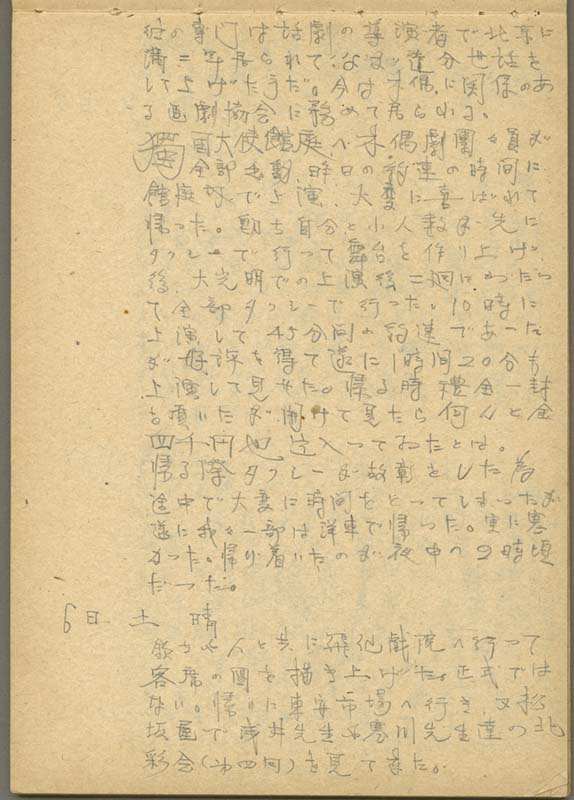 の専門は話劇の導演者で北京に
満二年居られて
して上げた今は木偶に関係のあ
る画劇協会に務めて居られる。
獨国大使館庭へ木偶劇團々員が
全部出動、昨日の約連の時間に
館庭で上演、大変に喜ばれて
帰った。自分と小人数が先に
タクシーで行って舞台を作り上げ、
後、大光明での上演後二廻にわたっ
て全部タクシーで行った。10時に
上演して45分間の約連であった
が好評を得て遂に1時間20分も
上演して見せた。帰る時禮金一封
を頂いたが開けて見たら何んと金
四千円也這入っておたとは。
帰る際タクシーが故障をした為
途中で大変に時間をとってしまったが
遂に我々一部は洋車で帰った。実に寒
かった。帰り着いたのが夜中の2時頃
だった。
6日 土 晴
人と共に飛仙戯院へ行って
客席の図を描き上げた。正式では
ない。帰りに東安市場へ行き、又松
坂屋で先生や寒川先生達の北
彩会(第四回)を見て来た。